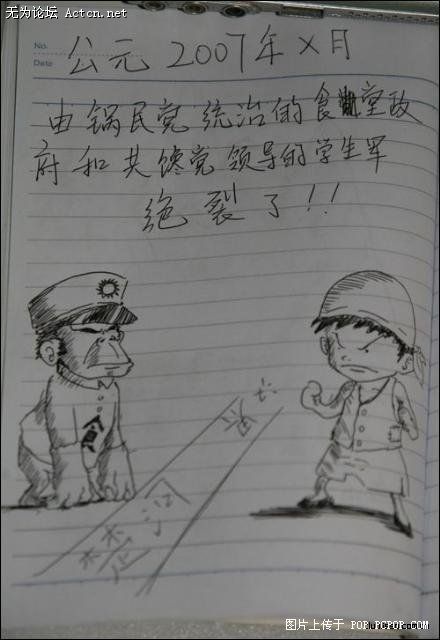 无为论坛 Actcn.net
Actcn.net
No.
Date
公元 2007年 X月
由锅民党统治的食堂政
府和共馋党领导的学生军
绝裂了!!
食
楚河
图片上传于 POP.PCPOP.COM